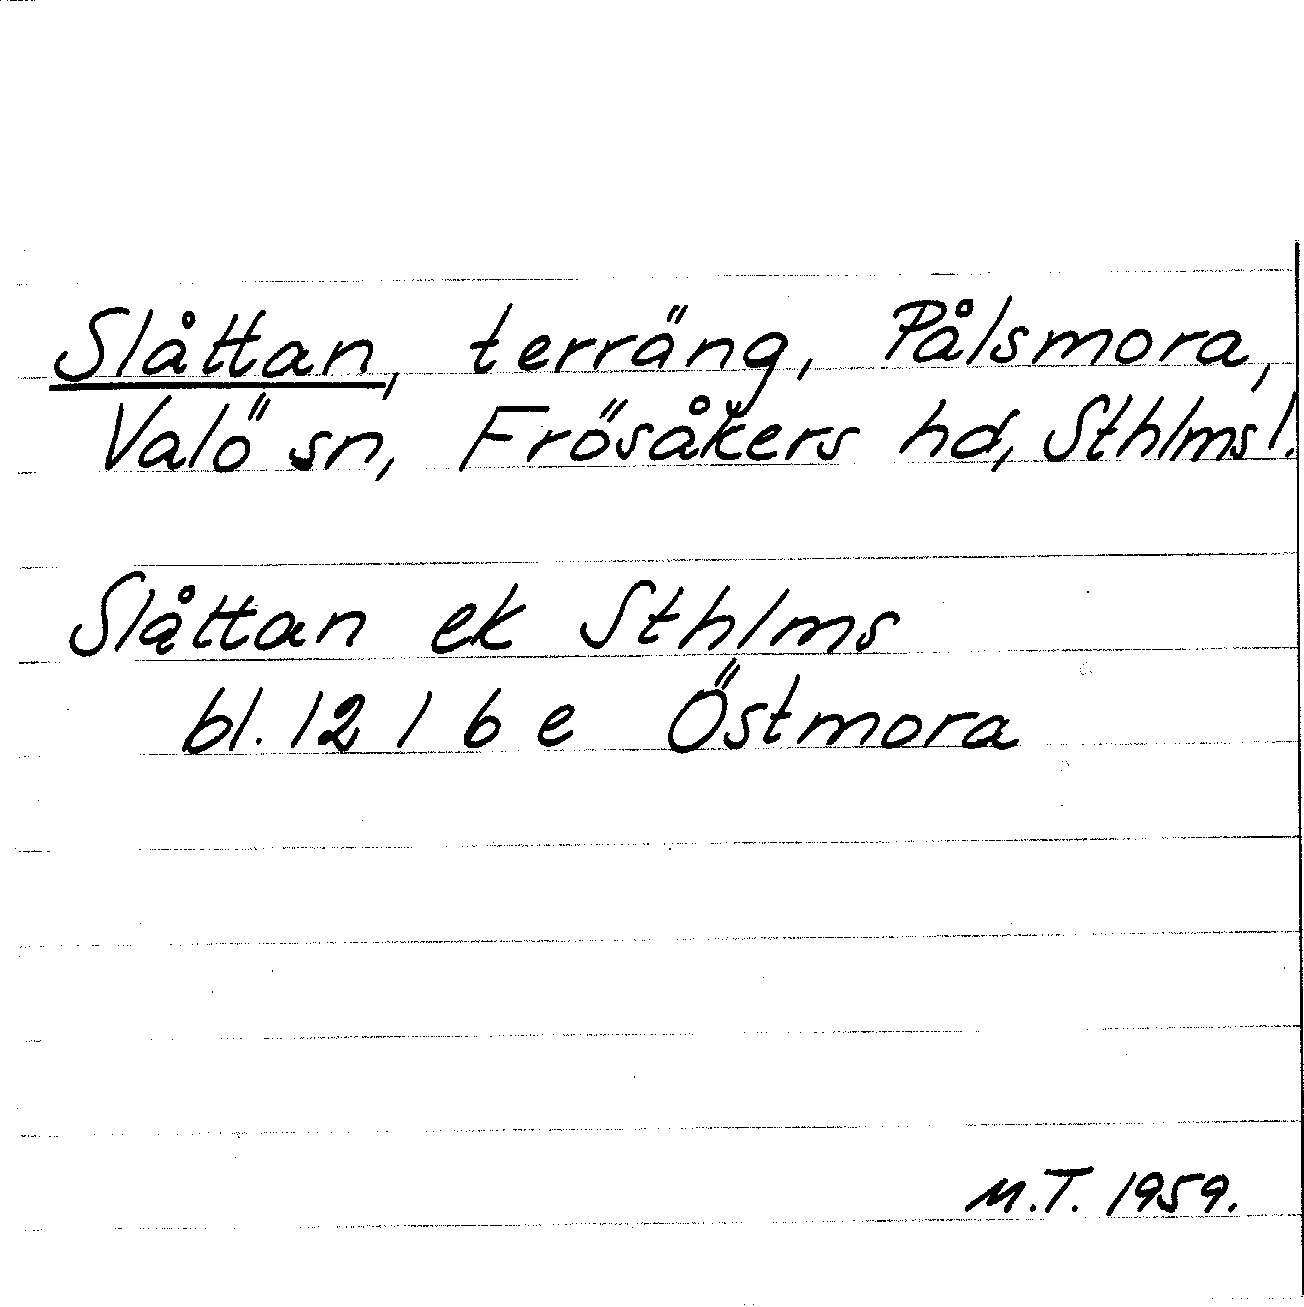 Slåttan, terräng, Pålsmora,
Valö sn, Frösåkers hd, Sthlms l.
Slåttan ek Sthlms
bl. 12 I 6 e Östmora
M.T. 1959.